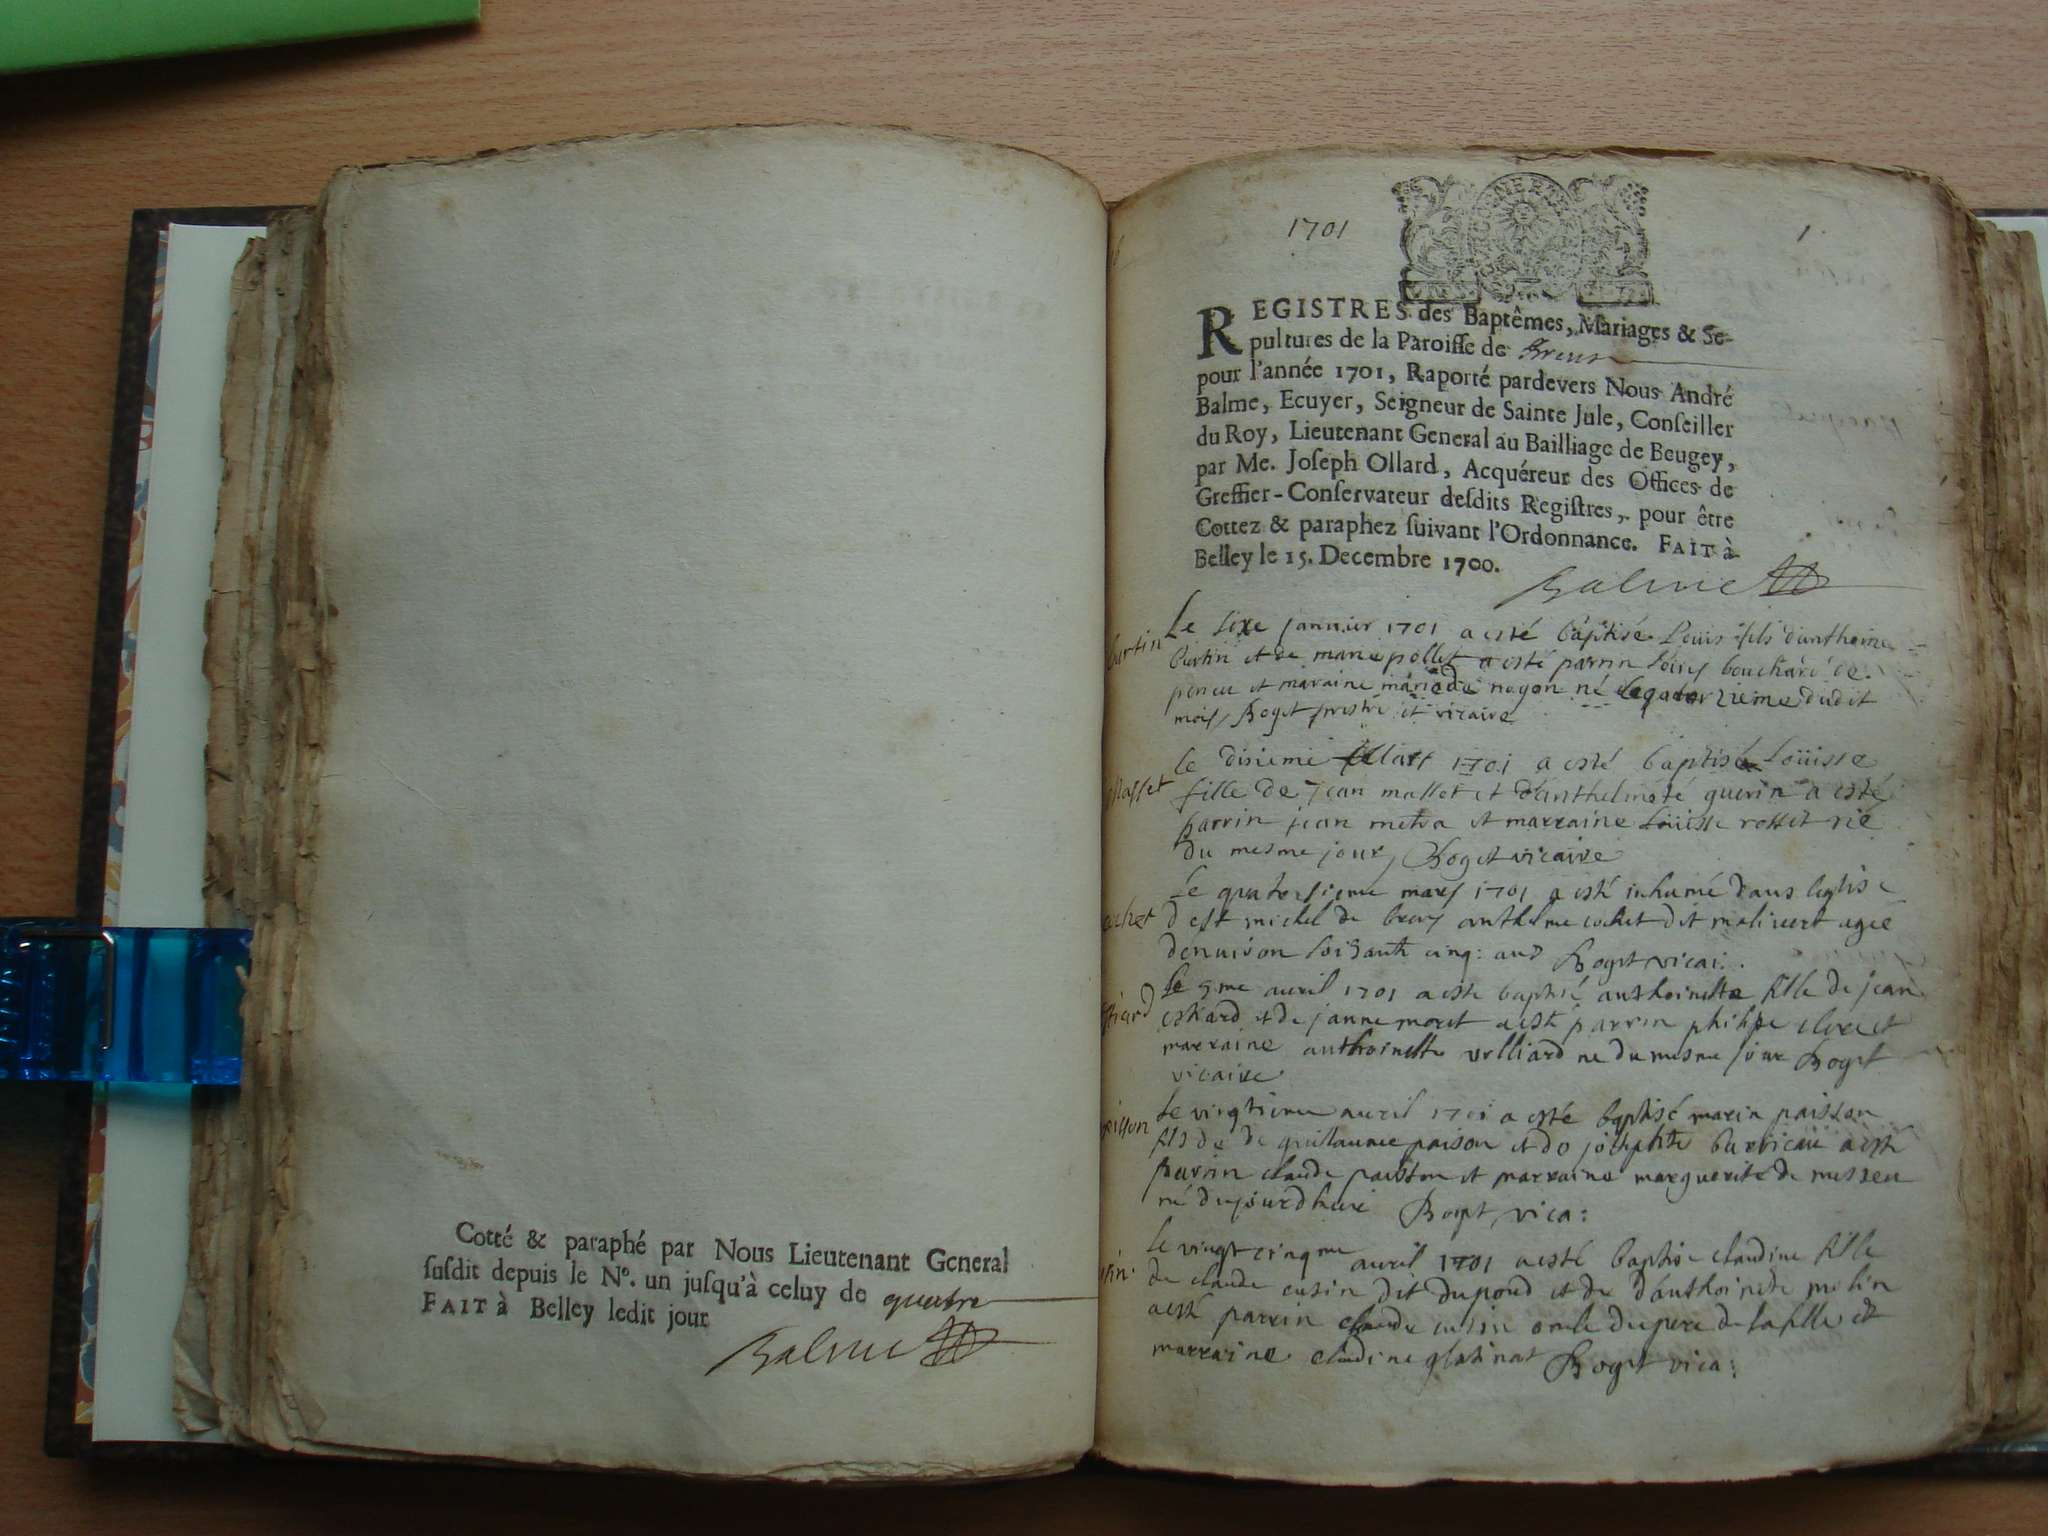 Cotté & paraphé par Nous Lieutenant General
susdit depuis le N°. un jusqu'à celuy de quatre
FAIT à Belley ledit jour
Balme
1701
1.
REGISTRES des Baptêmes, Mariages & Se-
pultures de la Paroisse de
pour l'année 1701, Raporté pardevers Nous André
Balme, Ecuyer, Seigneur de Sainte Jule, Conseiller
du Roy, Lieutenant General au Bailliage de Beugey,
par Me. Joseph Ollard, Acquéreur des Offices de
Greffier-Conservateur desdits Registres, pour être
Cottez & paraphez suivant l'Ordonnance. FAIT à
Belley le 15. Decembre 1700.
Balme
Le janvier 1701 a esté baptisé Louis fils danthoine
et de marie pollet a esté parrin bouchard de
et maraine marie de né le quatorzieme dudit
mois Roget prestre et vicaire
le disieme Mars 1701 a esté baptisé Louisse
fille de Jean mallet et danthelmete guerin a esté
parrin jean metra et marraine Louisse rosset né
du mesme jour, Roget vicaire
Le mars 1701 a esté inhumé dans leglise
d est michel de anthelme cochet dit malivert agee
denuiron soisante cinq: ans Roget vicai:
le 9me auril 1701 a este baptisé anthoinette fille de jean
et de janne moret a esté parrin philipe et
marraine anthoinette velliard ne du mesme jour Roget
vicaire
Le vingtieme auril 1701 a esté baptisé marin paisson
fils de de guillaume paison et de a esté
parrin claude paisson et marraine marguerite de musseu
né dujourdhuie Roget vica:
le vingt cinqme avril 1701 a esté baptisé claudine fille
de claude cusin dit dupond et de danthoinete molin
a esté parrin claude cusin oncle du pere de la fille et
marraine claudine glatinat Roget vica: